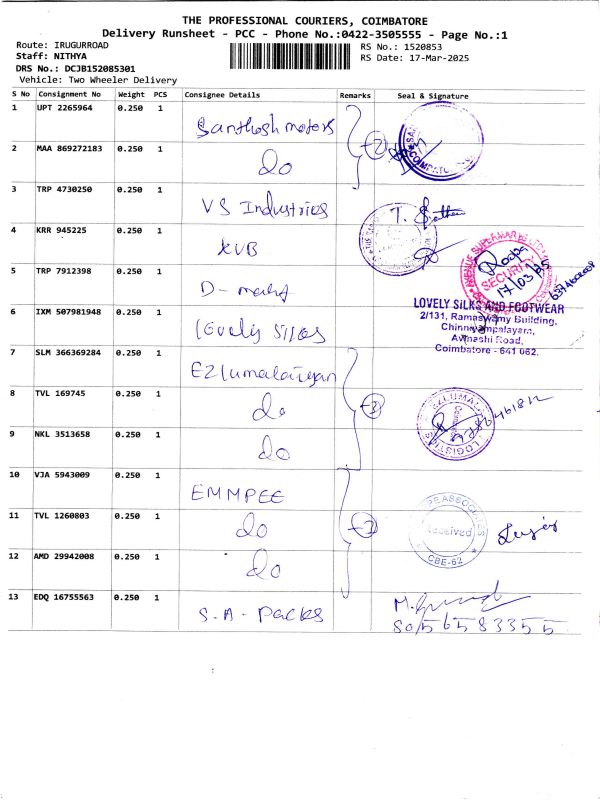 THE PROFESSIONAL COURIERS, COIMBATORE
Delivery Runsheet - PCC - Phone No.:0422-3505555 - Page No.:1
Route: IRUGURROAD
Staff: NITHYA
DRS No.: DCJB152085301
Vehicle: Two Wheeler Delivery
RS No.: 1520853
RS Date: 17-Mar-2025
S No Consignment No Weight PCS Consignee Details Remarks Seal & Signature
1 UPT 2265964 0.250 1 Santhosh motors
2 MAA 869272183 0.250 1 do
2
3 TRP 4730250 0.250 1 VS Industries
4 KRR 945225 0.250 1 KVB
5 TRP 7912398 0.250 1 D-
AVENUE SUPERMARTS LTD
SECURITY
17/03/25
6 IXM 507981948 0.250 1 lovely
LOVELY SILKS AND FOOTWEAR
2/131, Ramaswamy Building,
Chinniyampalayam,
Avinashi Road,
Coimbatore - 641 062.
7 SLM 366369284 0.250 1 Ezlumalaiyan
8 TVL 169745 0.250 1 do
3
9 NKL 3513658 0.250 1 do
LOGISTICS
10 VJA 5943009 0.250 1 EMMPEE
11 TVL 1260803 0.250 1 do
ASSOCIATES
Received
CBE-62
12 AMD 29942008 0.250 1 do
13 EDQ 16755563 0.250 1 S.A- Packs
8056583355